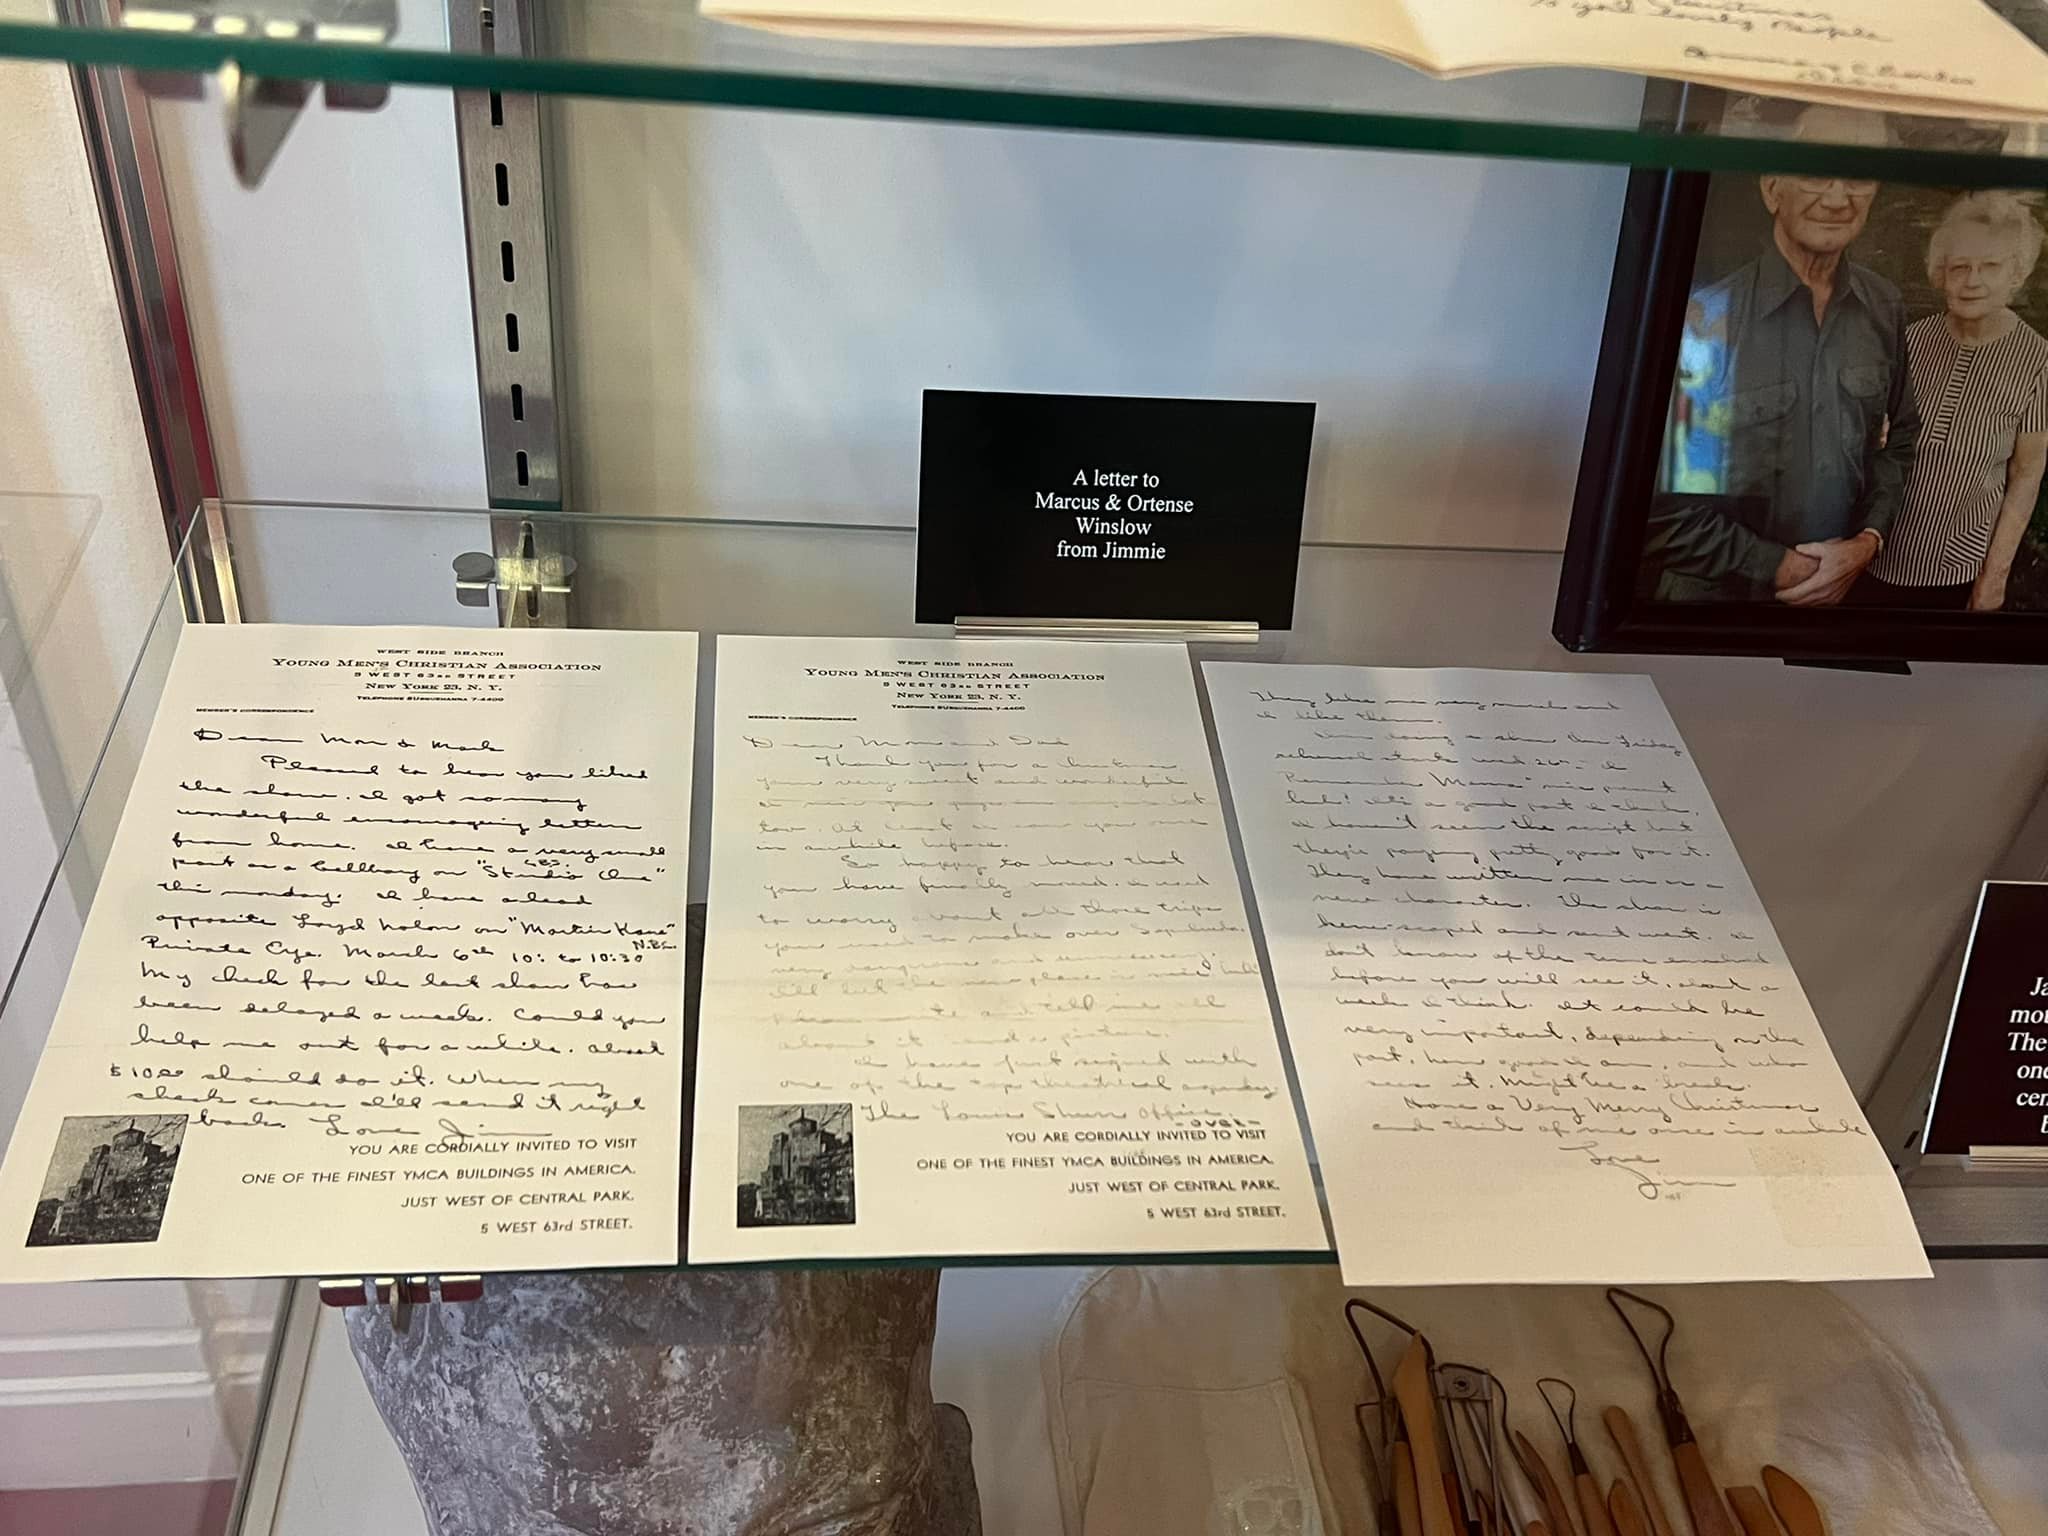 to you lovely People
A letter to
Marcus & Ortense
Winslow
from Jimmie
WEST SIDE BRANCH
YOUNG MEN'S CHRISTIAN ASSOCIATION
5 WEST 63RD STREET
NEW YORK 23, N. Y.
TELEPHONE SUSQUEHANNA 7-4400
MEMBER'S CORRESPONDENCE
Dear Mom & Mark
Pleased to hear you liked
the show. I got so many
wonderful encouraging letters
from home. I have a very small
part as a bellboy on "Studio One" CBS.
this monday. I have a lead
opposite Loyd Nolan on "Martin Kane"
Private Eye. March 6th 10: to 10:30 N.B.C.
My check for the last show has
been delayed a week. Could you
help me out for a while. about
$10.00 should do it. When my
check comes I'll send it right
back. Love Jim
YOU ARE CORDIALLY INVITED TO VISIT
ONE OF THE FINEST YMCA BUILDINGS IN AMERICA.
JUST WEST OF CENTRAL PARK.
5 WEST 63rd STREET.
WEST SIDE BRANCH
YOUNG MEN'S CHRISTIAN ASSOCIATION
5 WEST 63RD STREET
NEW YORK 23, N. Y.
TELEPHONE SUSQUEHANNA 7-4400
MEMBER'S CORRESPONDENCE
Dear Mom and Dad
Thank you for a Christmas
your very sweet and wonderful
too. At least I saw you once
in awhile before.
So happy to hear that
you have finally moved. I used
to worry about all those trips
you used to make over Sepulveda.
very dangerous and unnecessary.
I'll bet the new place is nice
write and tell me all
about it send a picture.
I have just signed with
one of the top theatrical agency
The Louis Shurr Office.
-OVER-
YOU ARE CORDIALLY INVITED TO VISIT
ONE OF THE FINEST YMCA BUILDINGS IN AMERICA.
JUST WEST OF CENTRAL PARK.
5 WEST 63rd STREET.
They like me very much and
I like them.
I'm doing a show for Friday
rehearsal starts wed 26th - I
Remember Mama" nice present
huh! It's a good part I think,
I haven't seen the script but
they're paying pretty good for it.
They have written me in as a
new character. The show is
kine-scoped and sent west. I
don't know of the time involved
before you will see it, about a
week I think. It could be
very important, depending on the
part, how good I am, and who
sees it. Might be a break.
Have a Very Merry Christmas
and think of me once in awhile
Love
Jim
Ja
mot
The
one
cen